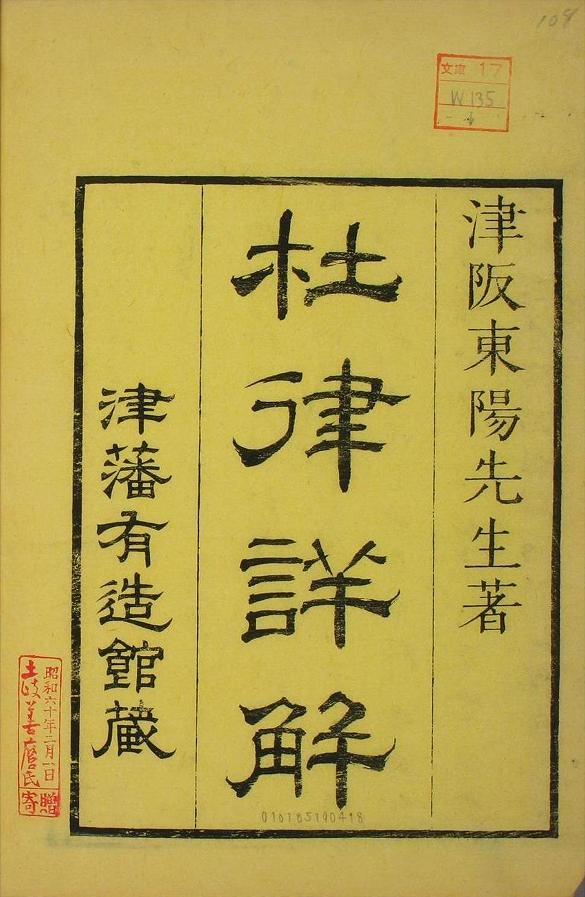 108
文庫 17
W 135
津阪東陽先生著
杜律詳解
津藩有造館蔵
昭和六十年二月一日
土岐善麿氏
寄贈
010185190418